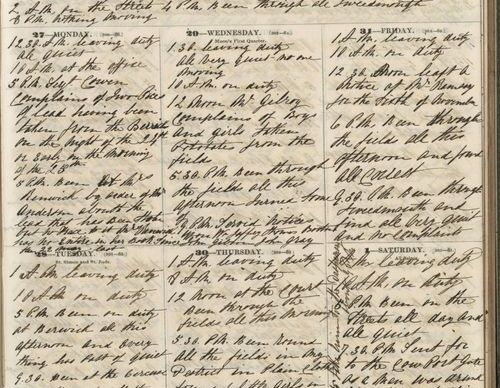 2 A.M. on the Streets 4 P.M. Been through all Tweedmouth
8 P.M. nothing moving
27—MONDAY.
12.30. A.M. leaving duty
All Quiet
10 A.M. at the office
5 P.M. Sergt Cowen
Complains of Two Pieces
of lead having been
taken from the
on the Night of the 24th
or Early on the Morning
of the 25th
5 P.M. Been
Renwick by order of Mr
Anderson about the
lead that has been
28—TUESDAY.
St. Simon and St. Jude.
1 A.M. leaving duty
10 A.M. on duty
5 P.M. Been on duty
at Berwick all this
afternoon and Every
thing has past of quiet
9.30 Been at the
29—WEDNESDAY.
Moon's First Quarter.
1.30. leaving duty
All Very Quiet no one
moving
10 A.M. on duty
12 Noon Mr Gilroy
Complains of Boys
and Girls taken
Potatoes from the
field
5.30. P.M. Been through
the fields all this
afternoon turned some
of
9 P.M. Served Notices
30—THURSDAY.
1 A.M. leaving duty
8 A.M. on duty
12 Noon at the Court
Been through the
fields all this Morning
5.30. P.M. Been Round
All the fields in my
District in Plain Clothes
31—FRIDAY.
1 A.M. leaving duty
10 A.M. on duty
12.30. Noon least a
Notice at Mr Ramsay
for the Sixth of November
6 P.M. Been through
the fields all this
afternoon and found
all Correct
9.30. P.M. Been through
Tweedmouth and
found all Very Quiet
and no Complaints
1—SATURDAY.
leaving duty
10 A.M. on duty
P.M. Been on the
Streets all day and
all quiet
7.30 P.M. Sent for
to the Cow Port Gate